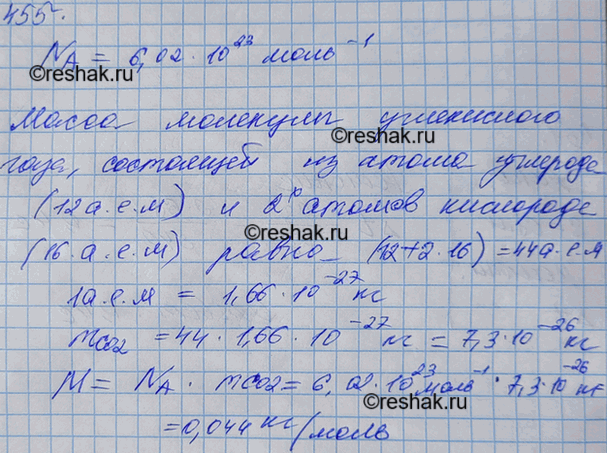 455.
N_A = 6,02 · 10²³ моль⁻¹
©reshak.ru
©reshak.ru
Масса молекулы углекислого
газа, состоящей из атома углерода
©reshak.ru
(12 а.е.м) и 2ˣ атомов кислорода
(16. а.е.м) равна (12+2·16) = 44 а.е.м
©reshak.ru
1 а.е.м = 1,66 · 10⁻²⁷ кг
©reshak.ru
m_CO2 = 44 · 1,66 · 10⁻²⁷ кг = 7,3·10⁻²⁶ кг
M = N_A · m_CO2 = 6,02·10²³ моль⁻¹ · 7,3·10⁻²⁶ кг
©reshak.ru
©reshak.ru
= 0,044 кг/моль